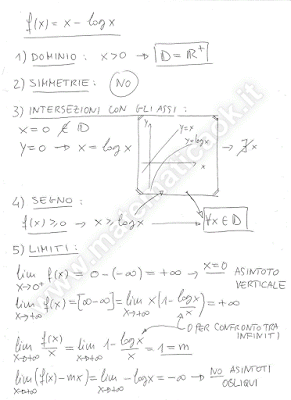 f(x) = x - log x
1) DOMINIO : x>0 → D = ℝ⁺
2) SIMMETRIE : NO
3) INTERSEZIONI CON GLI ASSI :
x=0 ∉ D
y=0 → x = log x → ∄x
y y=x
y=log x
x
4) SEGNO :
f(x) ⩾ 0 → x ⩾ log x → ∀x ∈ D
5) LIMITI :
lim x→0⁺ f(x) = 0-(-∞) = +∞ → x=0 ASINTOTO
VERTICALE
lim x→+∞ f(x) = [∞-∞] = lim x→+∞ x(1 - log x / x) = +∞
0 PER CONFRONTO TRA
INFINITI
lim x→+∞ f(x)/x = lim x→+∞ 1 - log x / x = 1 = m
lim x→+∞ (f(x)-mx) = lim x→+∞ -log x = -∞ → NO ASINTOTI
OBLIQUI